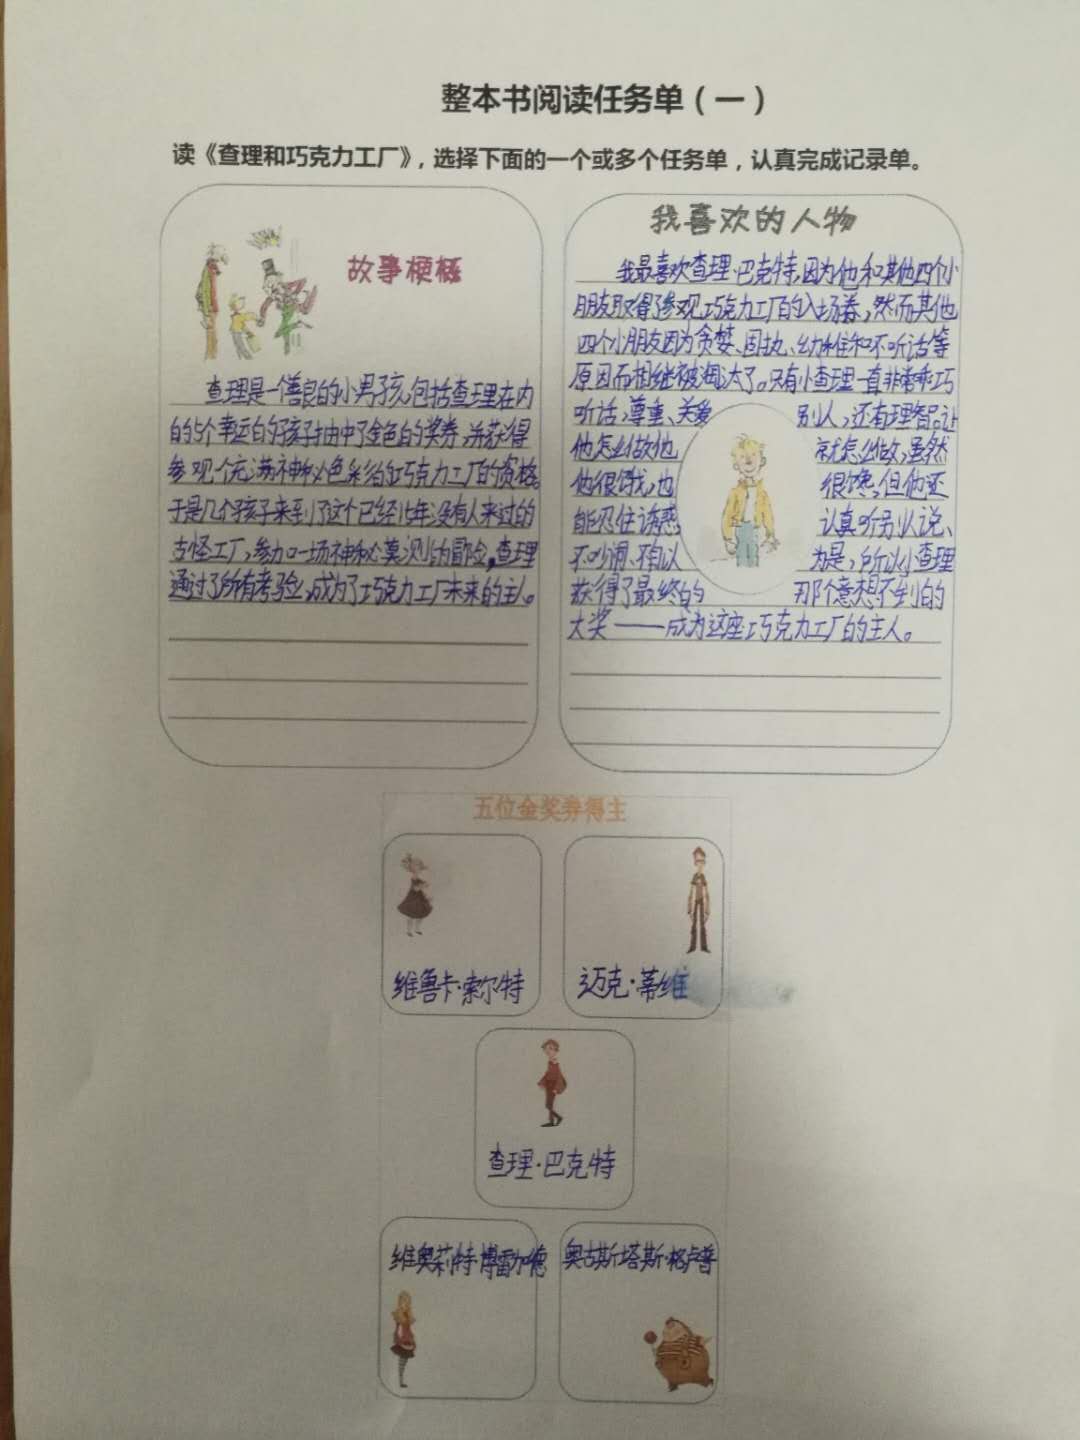 整本书阅读任务单（一）
读《查理和巧克力工厂》，选择下面的一个或多个任务单，认真完成记录单。
故事梗概
查理是一个善良的小男孩,包括查理在内
的5个幸运的好孩子抽中了金色的奖券,并获得
参观一个充满神秘色彩的巧克力工厂的资格。
于是几个孩子来到了这个已经小年没有人来过的
古怪工厂,参加一场神秘莫测的冒险,查理
通过了所有考验,成为了巧克力工厂未来的主人。
我喜欢的人物
我最喜欢查理·巴克特,因为他和其他四个小
朋友取得了参观巧克力工厂的入场券,然而其他
四个小朋友因为贪婪、固执、幼稚和不听话等
原因而相继被淘汰了。只有小查理一直非常乖巧
听话,尊重、关爱别人,还有理智。让
他怎么做他就怎么做,虽然
他很饿,也很馋,但他还
能忍住诱惑认真听别人说、
不吵闹、不自以为是,所以小查理
获得了最终的那个意想不到的
大奖——成为这座巧克力工厂的主人。
五位金奖券得主
维鲁卡·索尔特
迈克·蒂维
查理·巴克特
维奥莉特·博雷加德
奥古斯塔斯·格卢普